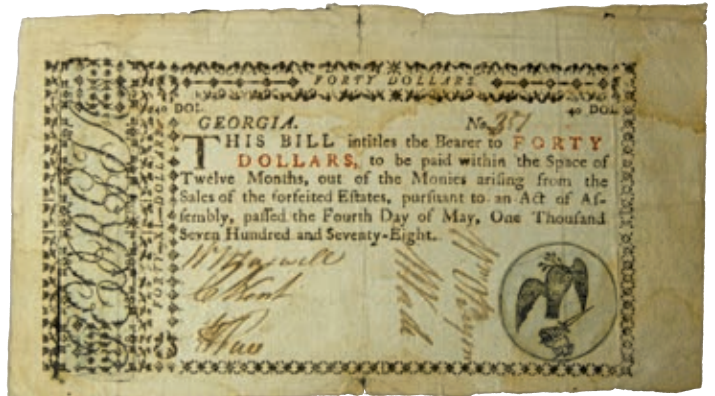 FORTY DOLLARS
40 DOL 40 DOL
GEORGIA. No. 381
THIS BILL intitles the Bearer to FORTY
DOLLARS, to be paid within the Space of
Twelve Months, out of the Monies arising from the
Sales of the forfeited Eſtates, purſuant to an Act of Aſ-
ſembly, paſſed the Fourth Day of May, One Thouſand
Seven Hundred and Seventy-Eight.
Wm Maxwell
C Kent
Wade